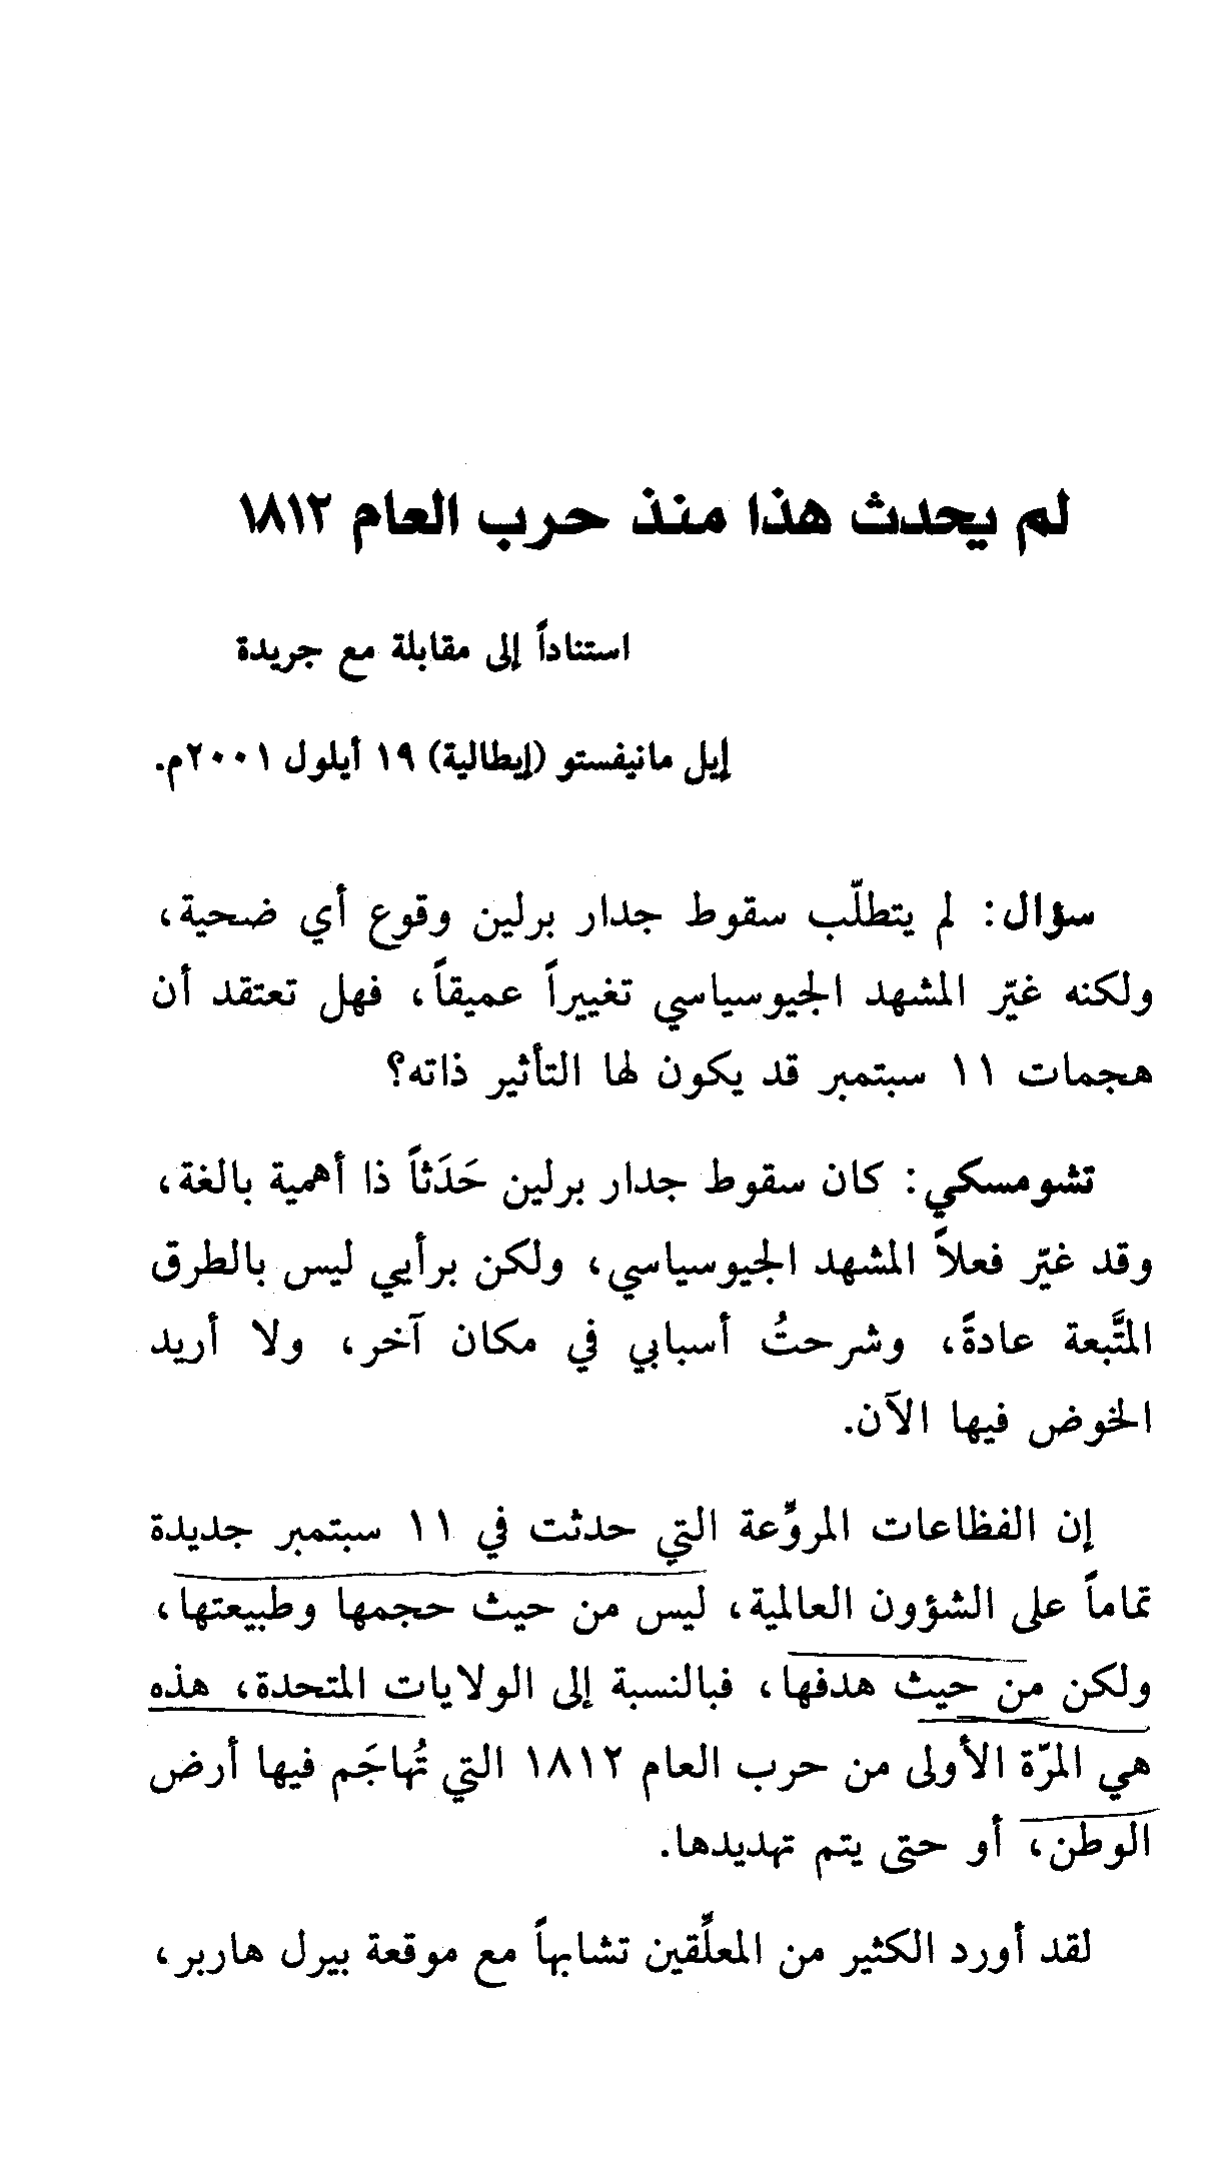 لم يحدث هذا منذ حرب العام ١٨١٢
استناداً إلى مقابلة مع جريدة
إيل مانيفستو (إيطالية) ١٩ أيلول ٢٠٠١م.
سؤال: لم يتطلّب سقوط جدار برلين وقوع أي ضحية،
ولكنه غيّر المشهد الجيوسياسي تغييراً عميقاً، فهل تعتقد أن
هجمات ١١ سبتمبر قد يكون لها التأثير ذاته؟
تشومسكي: كان سقوط جدار برلين حَدَثاً ذا أهمية بالغة،
وقد غيّر فعلاً المشهد الجيوسياسي، ولكن برأيي ليس بالطرق
المتَّبعة عادةً، وشرحتُ أسبابي في مكان آخر، ولا أريد
الخوض فيها الآن.
إن الفظاعات المروِّعة التي حدثت في ١١ سبتمبر جديدة
تماماً على الشؤون العالمية، ليس من حيث حجمها وطبيعتها،
ولكن من حيث هدفها، فبالنسبة إلى الولايات المتحدة، هذه
هي المرّة الأولى من حرب العام ١٨١٢ التي تُهاجَم فيها أرض
الوطن، أو حتى يتم تهديدها.
لقد أورد الكثير من المعلِّقين تشابهاً مع موقعة بيرل هاربر،